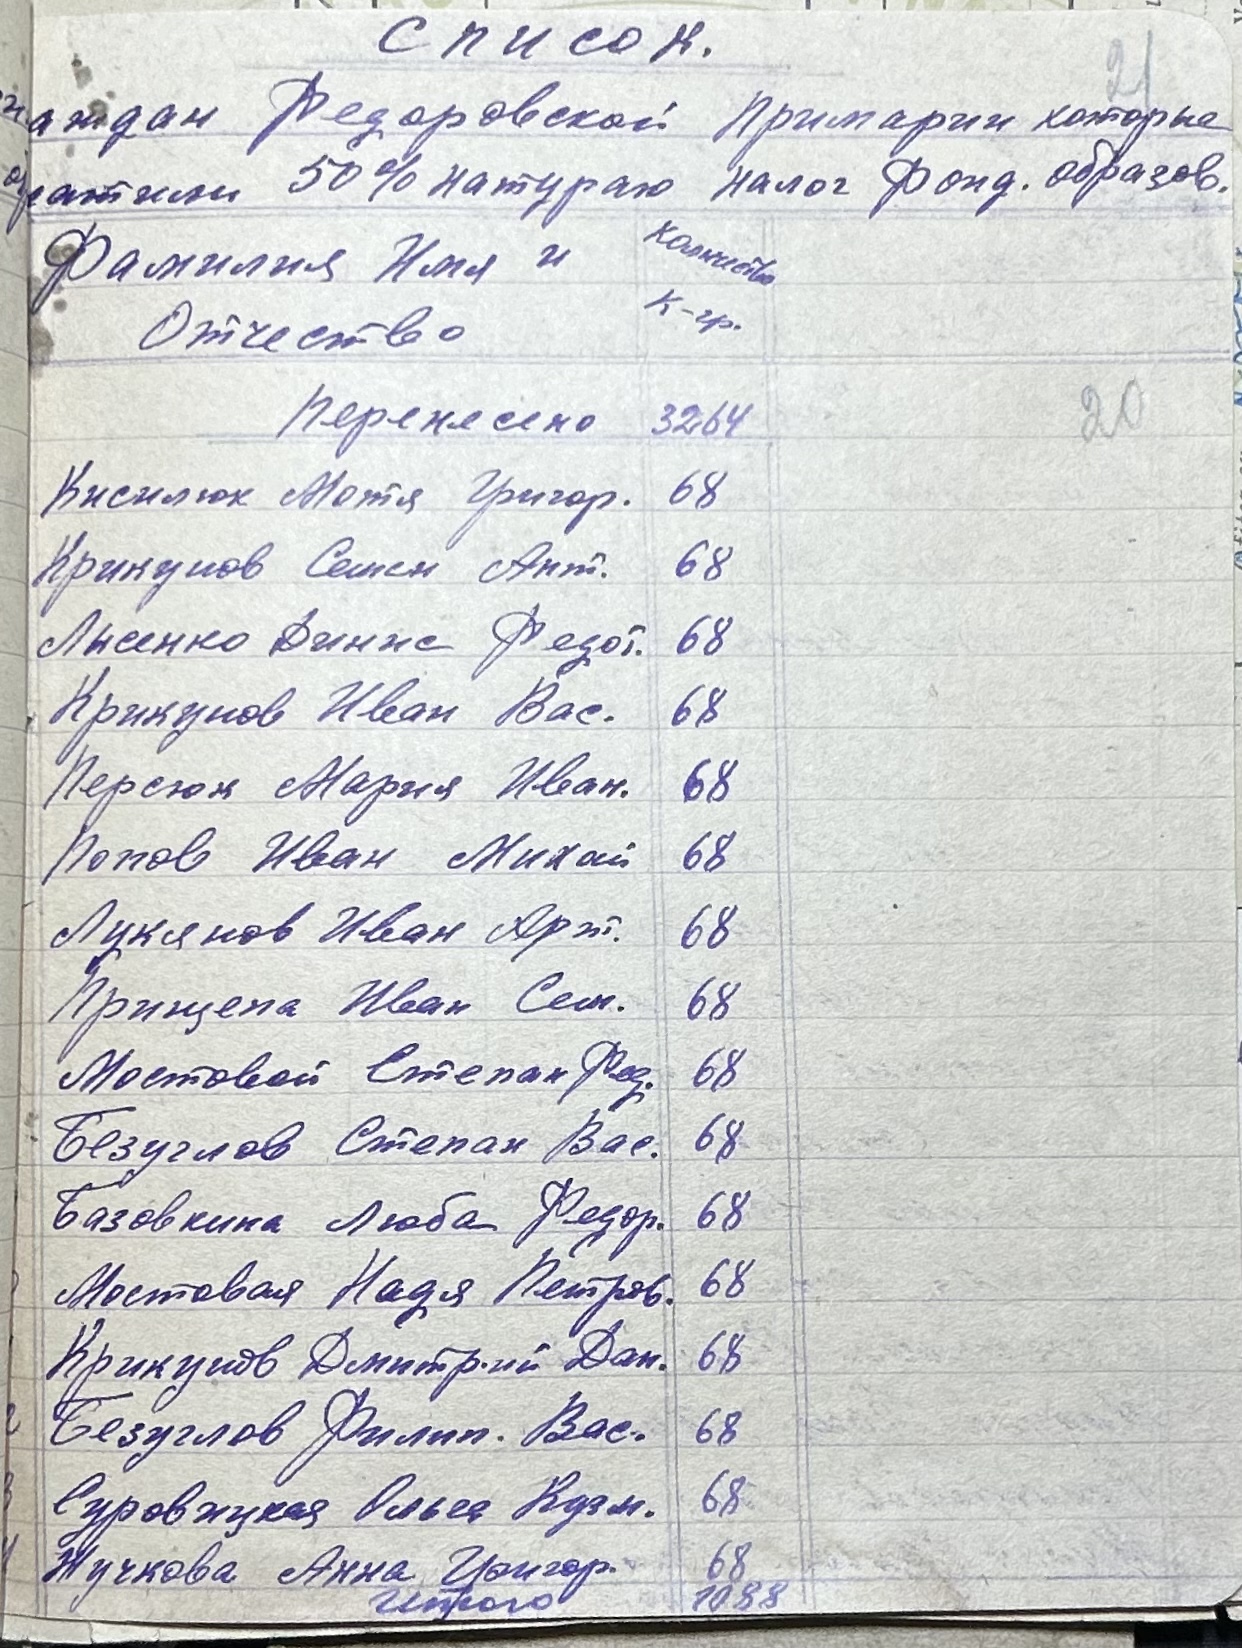 Список.
21
граждан Федоровской Примарии которые
50% натураю налог Фонд. образов.
Фамилия Имя и
Отчество
Количество
К-гр.
Перенесено 3264
20
Кисилюк Мотя Григор. 68
Крикунов Семен Ант. 68
Лысенко Динис Федот. 68
Крикунов Иван Вас. 68
Персюк Мария Иван. 68
Попов Иван Михай 68
Лукянов Иван Арт. 68
Прищепа Иван Сем. 68
Мостовой Степан Фед. 68
Безуглов Степан Вас. 68
Базовкина Люба Федор. 68
Мостовая Надя Петров. 68
Крикунов Дмитрий Дан. 68
Безуглов Филип. Вас. 68
Суровицкая Ольга Кузм. 68
Жучкова Анна Григор. 68
Итого 1088